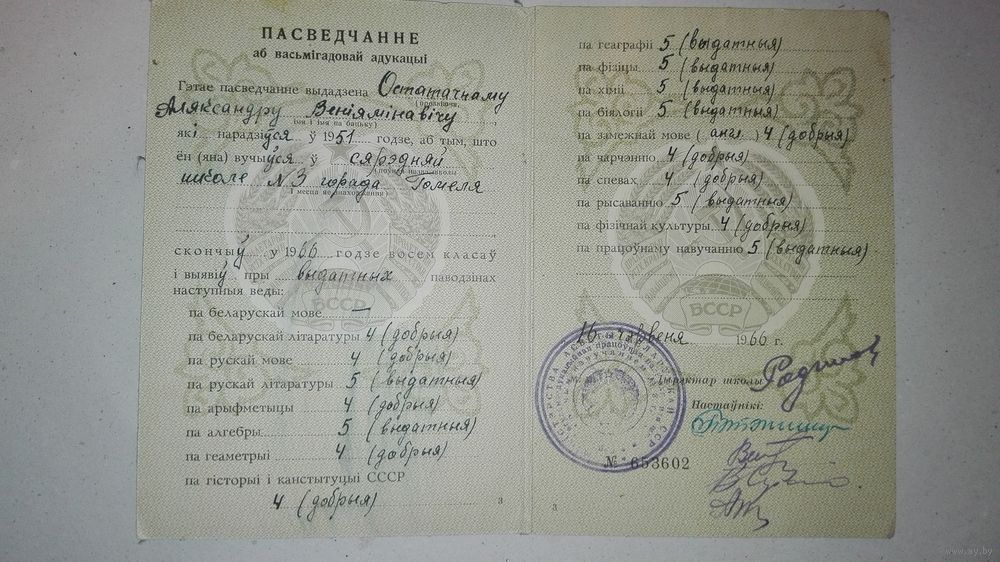 ПАСВЕДЧАННЕ
аб васьмігадовай адукацыі
Гэтае пасведчанне выдадзена Остатачнаму
(прозвішча,
Аляксандру Веніямінавічу
імя і імя па бацьку)
які нарадзіўся ў 1951 годзе, аб тым, што
ён (яна) вучыўся ў сярэдняй
(поўная назва школы
школе №3 горада Гомеля
і месца яе знаходжання)
скончыў у 1966 годзе восем класаў
і выявіў пры выдатных паводзінах
наступныя веды:
па беларускай мове —
па беларускай літаратуры 4 (добрыя)
па рускай мове 4 (добрыя)
па рускай літаратуры 5 (выдатныя)
па арыфметыцы 4 (добрыя)
па алгебры 5 (выдатныя)
па геаметрыі 4 (добрыя)
па гісторыі і канстытуцыі СССР
4 (добрыя)
3
БССР
па геаграфіі 5 (выдатныя)
па фізіцы 5 (выдатныя)
па хіміі 5 (выдатныя)
па біялогіі 5 (выдатныя)
па замежнай мове (англ.) 4 (добрыя)
па чарчэнню 4 (добрыя)
па спевах 4 (добрыя)
па рысаванню 5 (выдатныя)
па фізічнай культуры 4 (добрыя)
па працоўнаму навучанню 5 (выдатныя)
БССР
16 чэрвеня 1966 г.
Дырэктар школы
Настаўнікі:
№ 653602
3
www.ay.by